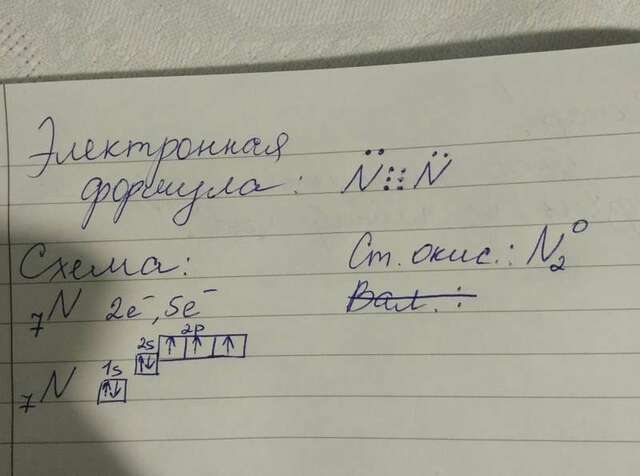 Электронная
формула: N⋮⋮N
Схема:
Ст. окис.: N₂⁰
₇N 2e⁻, 5e⁻
Вал. :
₇N 1s ↑↓ 2s ↑↓ 2p ↑ ↑ ↑